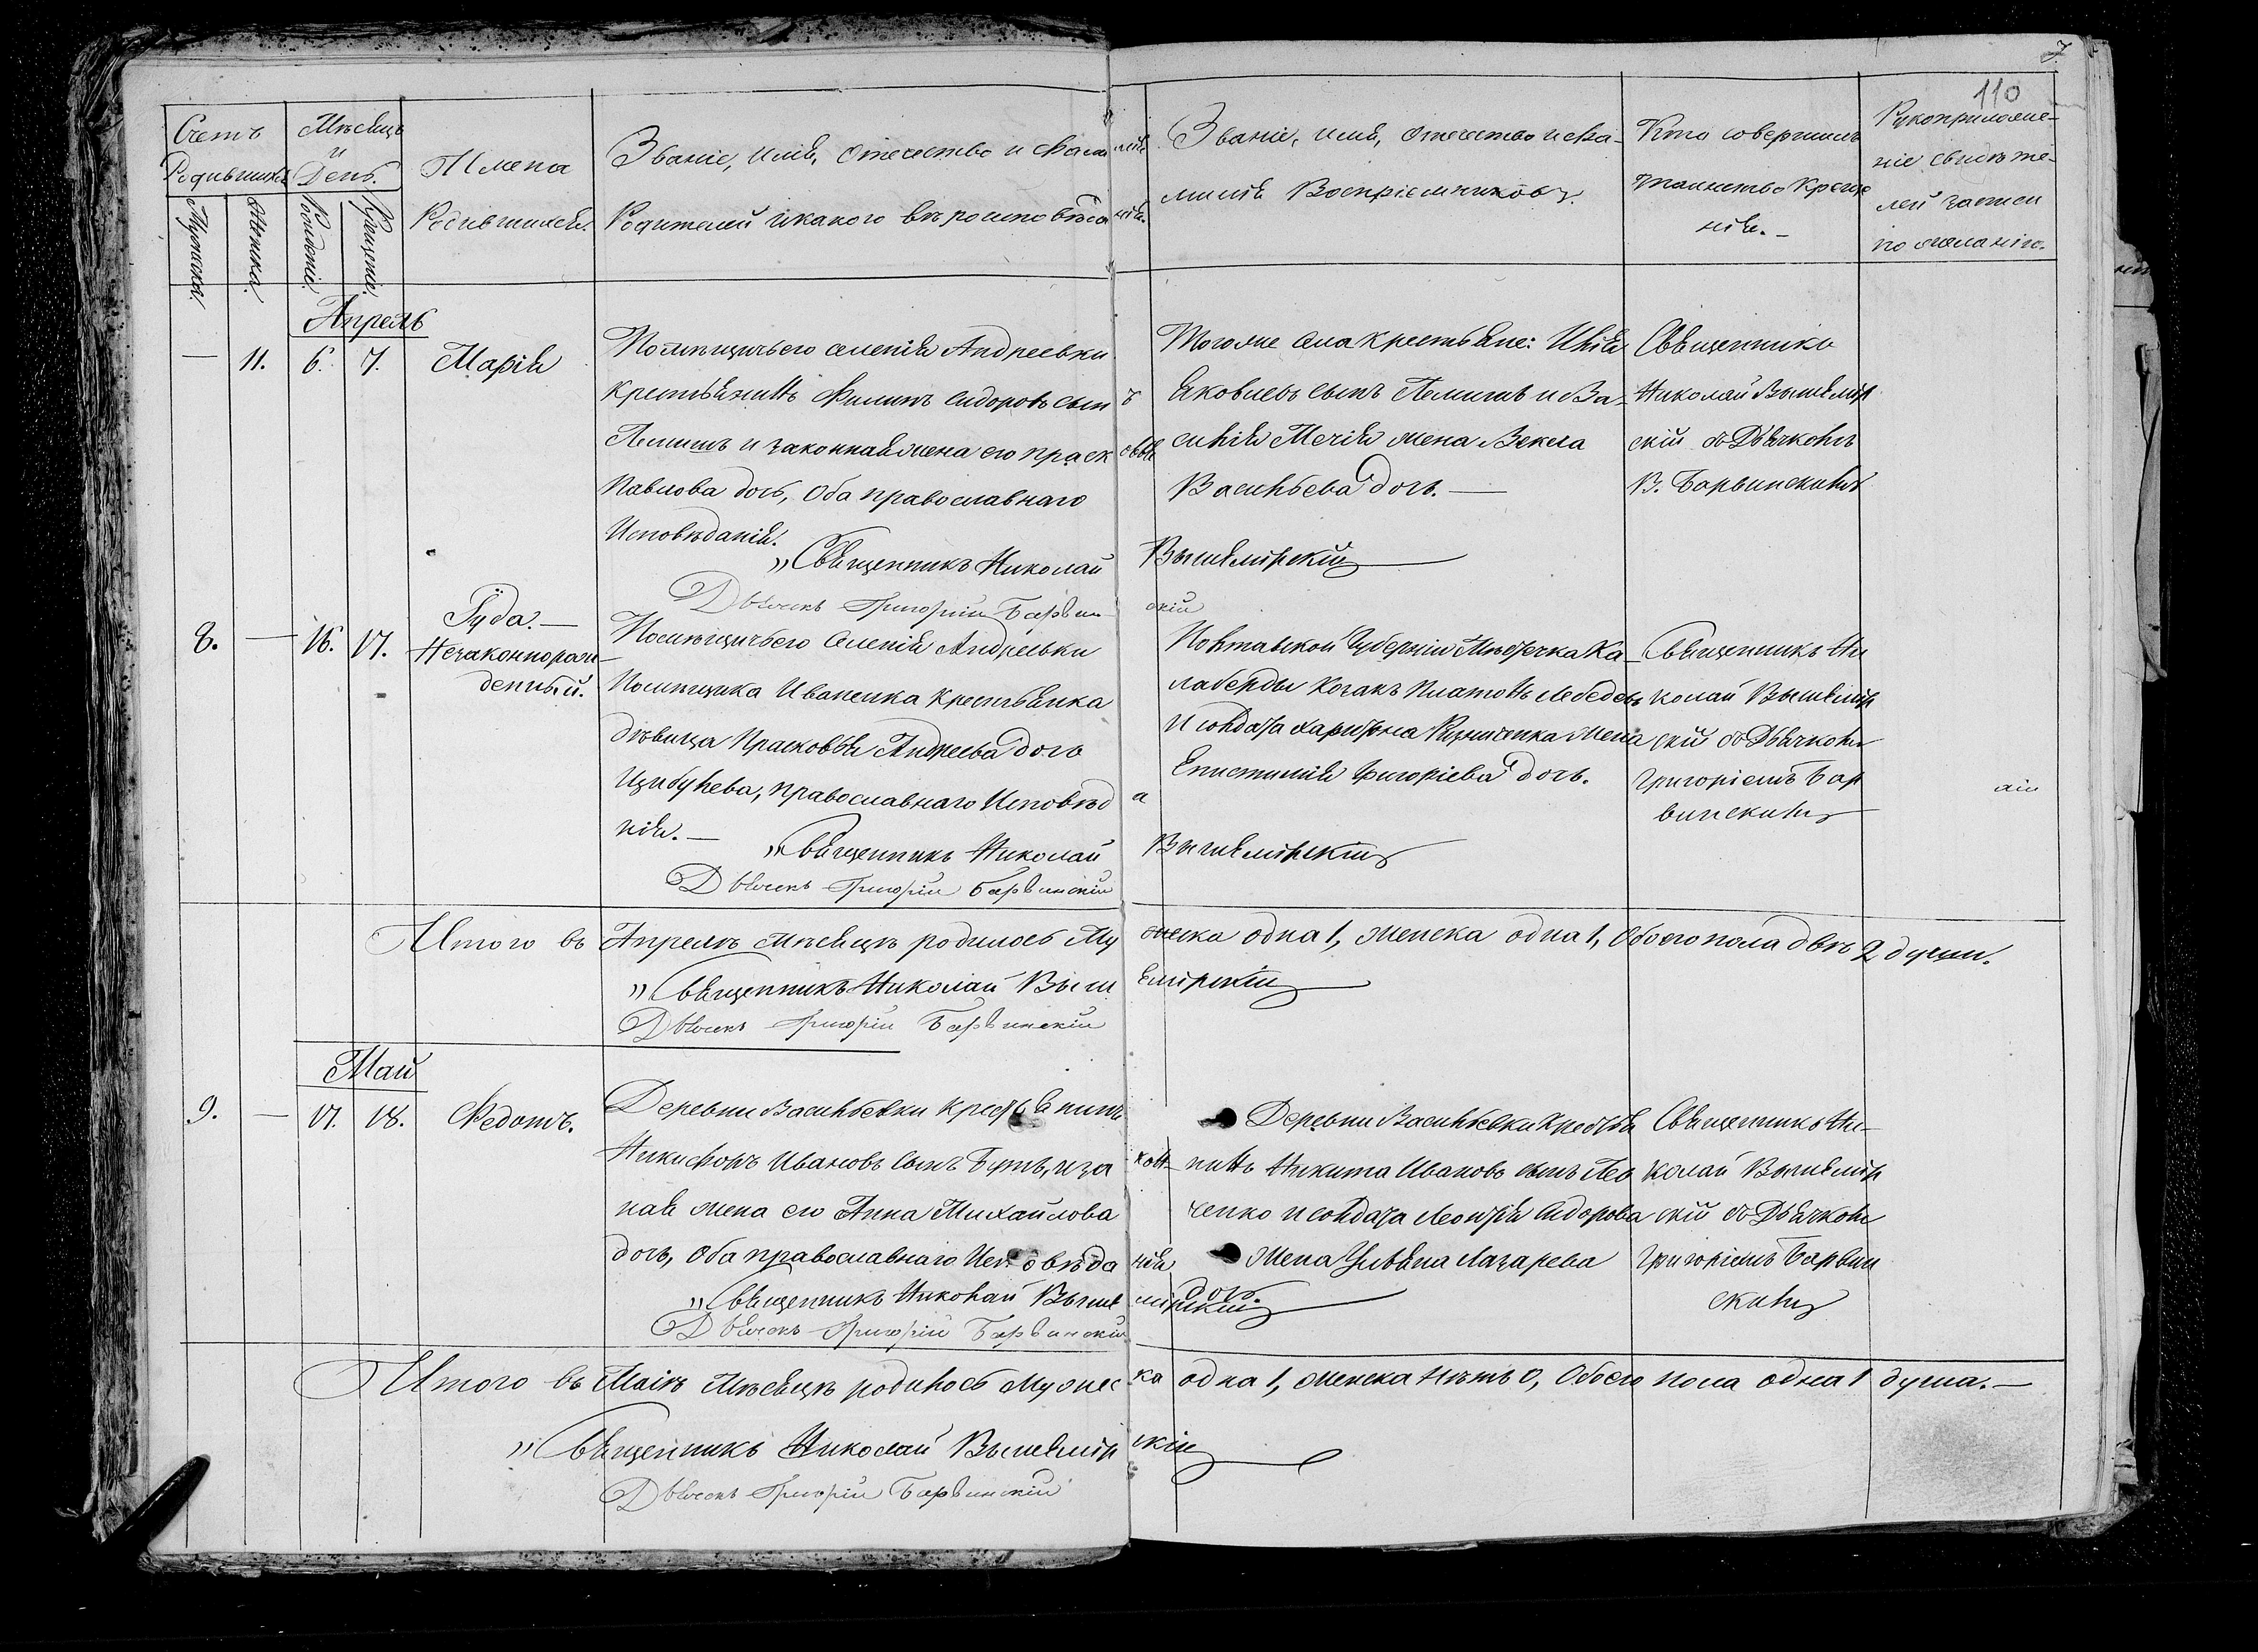 110
Счетъ
Родившихся
Мѣсяцъ
и
День.
Мужеска.
Женска.
Рожденіе.
Крещеніе.
Имена
Родившихся.
Званіе, имя, отечество и фамилія
Родителей и какого вѣроисповѣданія.
Званіе, имя, отечество и фа-
милія Воспріемниковъ.
Кто совершилъ
таинство Креще
нія.—
Рукоприложе-
ніе свидѣте-
лей записи
по желанію.
Апрель
— 11. 6. 7. Марія
Помѣщичьего селенія Андреевки
крестьянинъ Филипъ Сидоровъ сынъ
Лемишъ и законная жена его Прасковья
Павлова дочь, Оба православнаго
Исповѣданія.
„Священникъ Николай Вышемірскій
Дьячекъ Григорій Барвинскій
Тогоже села крестьяне: Илія
Яковлевъ сынъ Лемишъ и Ва-
силія жена Векла
Васильева дочь.—
Священникъ
Николай Вышемір
скій съ Дьячкомъ
Барвинскимъ
8. — 16. 17. Іуда.—
Незаконнорож-
денный.
Помѣщичьего селенія Андреевки
Помѣщика Иваненка крестьянка
дѣвица Прасковья Андреева дочь
Цыбулева, православнаго Исповѣда
нія.—
„Священникъ Николай Вышемірскій
Дьячекъ Григорій Барвинскій
Полтавской Губерніи Мѣстечка Ка-
лаберды Козакъ Платонъ Лебедевъ
и солдата Харитона жена
Епистимія Григоріева дочь.
Священникъ Ни
колай Вышемір
скій съ Дьячкомъ
Григоріемъ Бар
винскимъ
Итого въ Апрелѣ Мѣсяцѣ родилось Мужеска одна 1, женска одна 1, Обоего пола двѣ 2 души.
„Священникъ Николай Вышемірскій
Дьячекъ Григорій Барвинскій
Май
9. — 17. 18. Федотъ.
Деревни Васильевки крестьянинъ
Никифоръ Ивановъ сынъ Бутъ, и закон-
ная жена его Анна Михайлова
дочь, Оба православнаго Исповѣданія
„Священникъ Николай Вышемірскій
Дьячекъ Григорій Барвинскій
Деревни Васильевки Крестья
нинъ Никита Ивановъ сынъ Лев
ченко и солдата Леонтія Сидорова
жена Ульяна Лазарева
дочь.
Священникъ Ни-
колай Вышемір
скій съ Дьячкомъ
Григоріемъ Барвин
скимъ
Итого въ Маіѣ Мѣсяцѣ родилось Мужеска одна 1, женска нѣтъ 0, Обоего пола одна 1 душа.—
„Священникъ Николай Вышемірскій
Дьячекъ Григорій Барвинскій